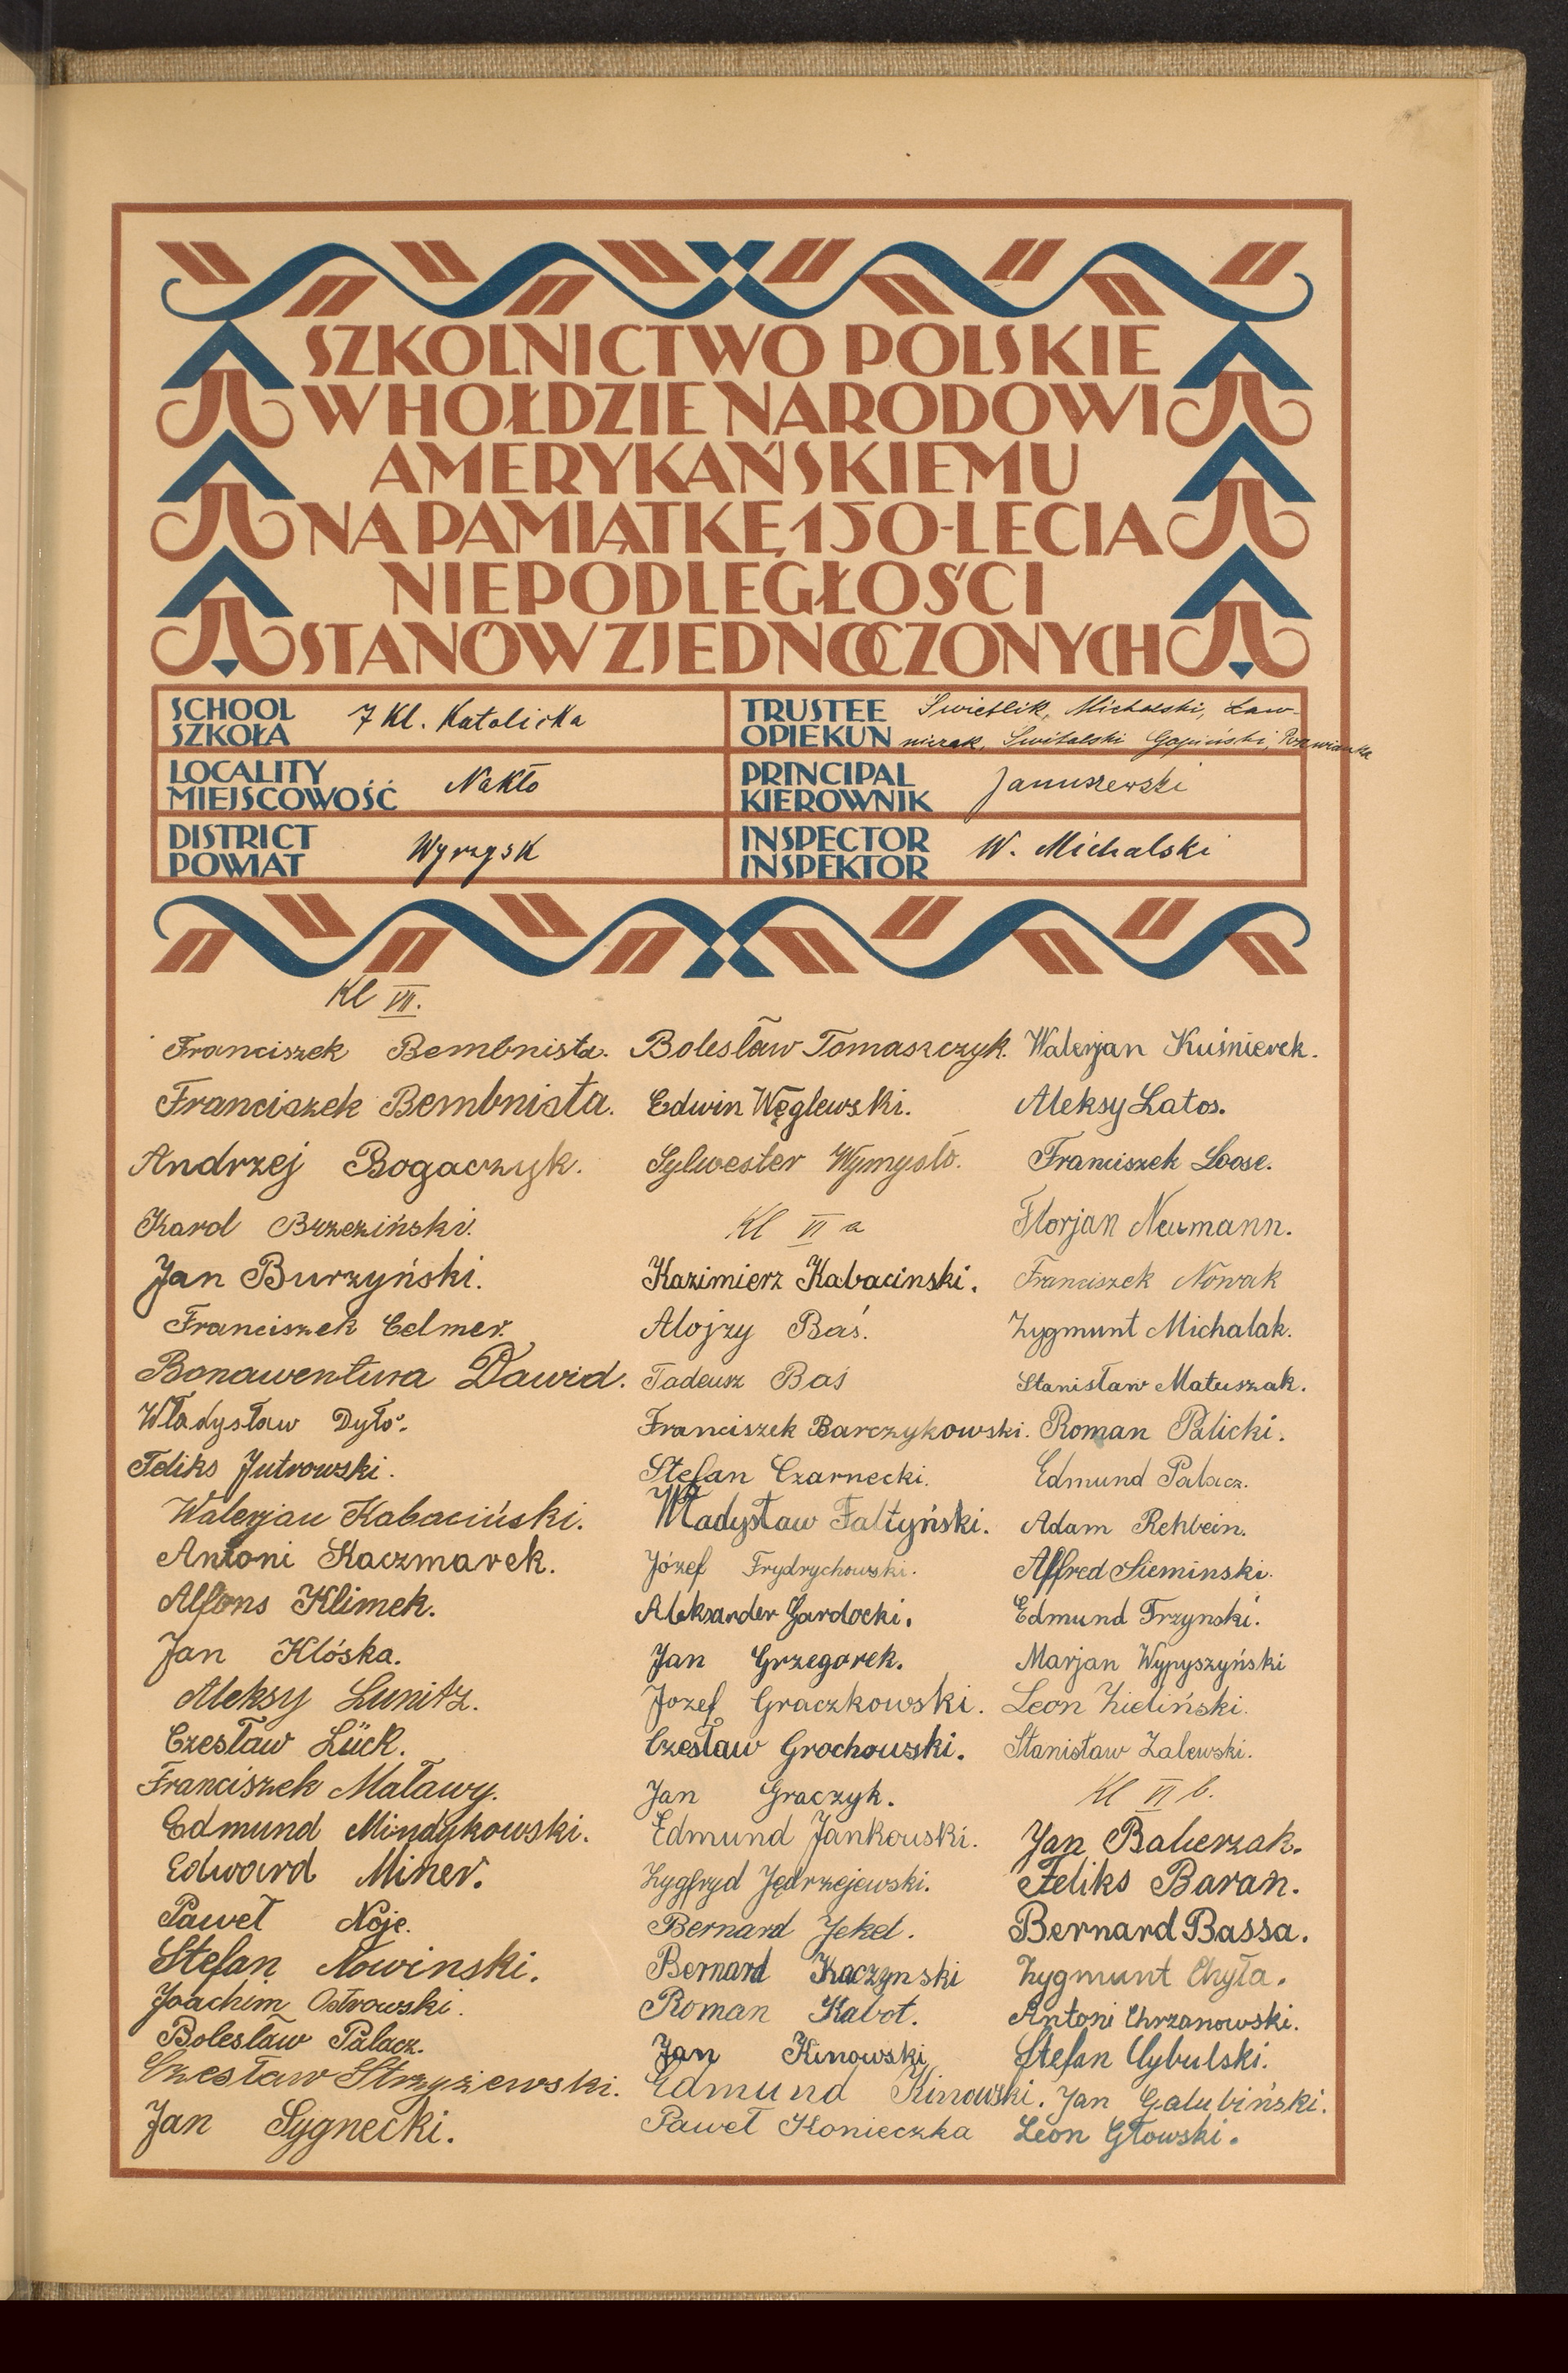 SZKOLNICTWO POLSKIE
W HOŁDZIE NARODOWI
AMERYKAŃSKIEMU
NA PAMIĄTKĘ 150-LECIA
NIEPODLEGŁOŚCI
STANÓW ZJEDNOCZONYCH
SCHOOL
SZKOŁA
7 Kl. Katolicka
TRUSTEE
OPIEKUN
Świetlik, Michalski, Ław-
niczak, Świtalski
LOCALITY
MIEJSCOWOŚĆ
Nakło
PRINCIPAL
KIEROWNIK
Januszewski
DISTRICT
POWIAT
Wyrzysk
INSPECTOR
INSPEKTOR
W. Michalski
Kl VII.
Franciszek Bembnista.
Franciszek Bembnista.
Andrzej Bogaczyk.
Karol Brzeziński.
Jan Burzyński.
Franciszek Celmer.
Bonawentura Dawid.
Władysław Dyło.
Feliks Jutrowski.
Walerjan Kabaciński.
Antoni Kaczmarek.
Alfons Klimek.
Jan Klóska.
Aleksy Lunitz.
Czesław Lück.
Franciszek Maławy.
Edmund Mindykowski.
Edward Miner.
Paweł Noje.
Stefan Nowinski.
Joachim Ostrowski.
Bolesław Palacz.
Czesław Strzyżewski.
Jan Sygnecki.
Bolesław Tomaszczyk.
Edwin Węglewski.
Sylwester Wymysło.
Kl VI a
Kazimierz Kabacinski.
Alojzy Baś.
Tadeusz Baś
Franciszek Barczykowski.
Stefan Czarnecki.
Władysław Faltyński.
Józef Frydrychowski.
Aleksander Gardocki.
Jan Grzegorek.
Jozef Graczkowski.
Czesław Grochowski.
Jan Graczyk.
Edmund Jankowski.
Zygfryd Jędrzejewski.
Bernard Jekel.
Bernard Kaczynski
Roman Kabot.
Jan Kinowski
Edmund Kinowski.
Paweł Konieczka
Walerjan Kuśnierek.
Aleksy Latos.
Franciszek Loose.
Florjan Neumann.
Franciszek Nowak
Zygmunt Michalak.
Stanisław Matuszak.
Roman Palicki.
Edmund Palacz.
Adam Rehbein.
Alfred Sieminski.
Edmund Trzynski.
Marjan Wypyszyński
Leon Zieliński.
Stanisław Zalewski.
Kl VI b.
Jan Balcerzak.
Feliks Baran.
Bernard Bassa.
Zygmunt Chyła.
Antoni Chrzanowski.
Stefan Cybulski.
Jan Galubiński.
Leon Głowski.